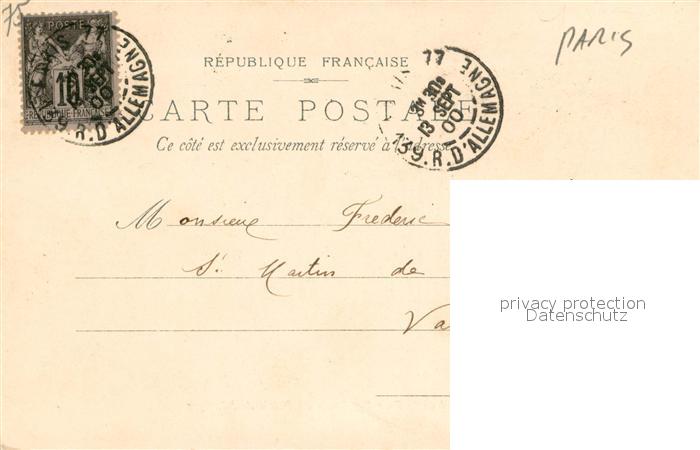 75
PARIS
POSTE
10
RÉPUBLIQUE FRANÇAISE
139. R. D'ALLEMAGNE
RÉPUBLIQUE FRANÇAISE
CARTE POSTALE
Ce côté est exclusivement réservé à l'adresse
77
13
SEPT
00
139. R. D'ALLEMAGNE
Monsieur Frederic
St. Martin de
Va
privacy protection
Datenschutz